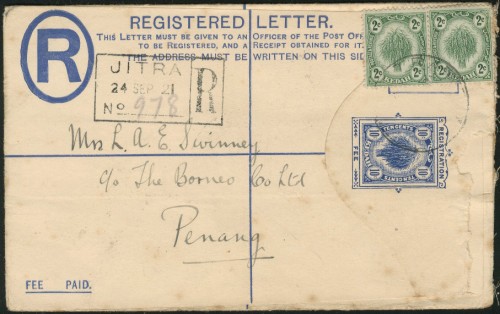 REGISTERED LETTER.
THIS LETTER MUST BE GIVEN TO AN OFFICER OF THE POST OFFICE
TO BE REGISTERED, AND A RECEIPT OBTAINED FOR IT.
THE ADDRESS MUST BE WRITTEN ON THIS SIDE
R
JITRA
24 SEP. 21
No 978
R
2c 2c
KEDAH
2c 2c
2c 2c
KEDAH
2c 2c
REGISTRATION
TEN CENTS
10 10
10 10
FEE
Mrs L. A. E. Swinney
c/o The Borneo Co Ltd
Penang
FEE PAID.